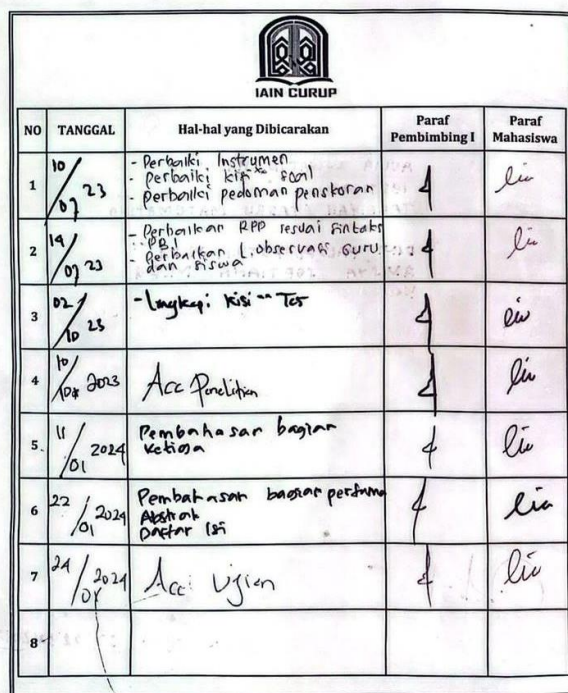 IAIN CURUP
NO TANGGAL Hal-hal yang Dibicarakan Paraf Pembimbing I Paraf Mahasiswa
1 10/07 23 - Perbaiki Instrumen
- perbaiki kisi" soal
- perbaiki pedoman penskoran
2 19/07 23 - Perbaikan RPP sesuai sintaks
PBI
- Perbaikan L. observasi guru
dan siswa
3 02/10 23 - Lengkapi kisi" Tes
4 10/10 2023 Acc Penelitian
5. 11/01 2024 Pembahasan bagian
ketiga
6 22/01 2024 Pembahasan bagian pertama
Abstrak
Daftar Isi
7 24/01 2024 Acc Ujian
8